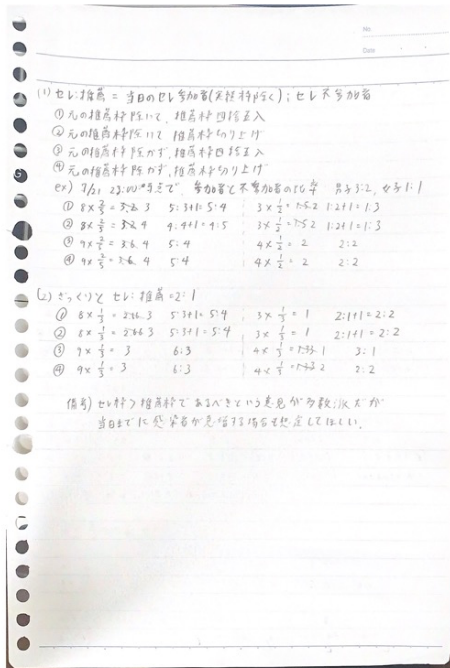 No
Date
(1) セレ:推薦 = 当日のセレ参加者(実績枠除く):セレ不参加者
① 元の推薦枠除いて、推薦枠四捨五入
② 元の推薦枠除いて 推薦枠切り上げ
③ 元の推薦枠除かず、推薦枠四捨五入
④ 元の推薦枠除かず、推薦枠切り上げ
ex) 23:00時点で、参加者と不参加者の比が 男子3:2、女子1:1
① 8×2/5=3.2 3 5:3+1=5:4 3×1/2=1.5 2 1:2+1=1:3
② 8×2/5=3.2 4 4:4+1=4:5 3×1/2=1.5 2 1:2+1=1:3
③ 9×2/5=3.6 4 5:4 4×1/2=2 2:2
④ 9×2/5=3.6 4 5:4 4×1/2=2 2:2
(2) ざっくりと セレ:推薦=2:1
① 8×1/3=2.66 3 5:3+1=5:4 3×1/3=1 2:1+1=2:2
② 8×1/3=2.66 3 5:3+1=5:4 3×1/3=1 2:1+1=2:2
③ 9×1/3=3 6:3 4×1/3=1.33 1 3:1
④ 9×1/3=3 6:3 4×1/3=1.33 2 2:2
備考) セレ枠>推薦枠であるべきという意見が多数派だが
当日までに感染者が急増する場合も想定してほしい。